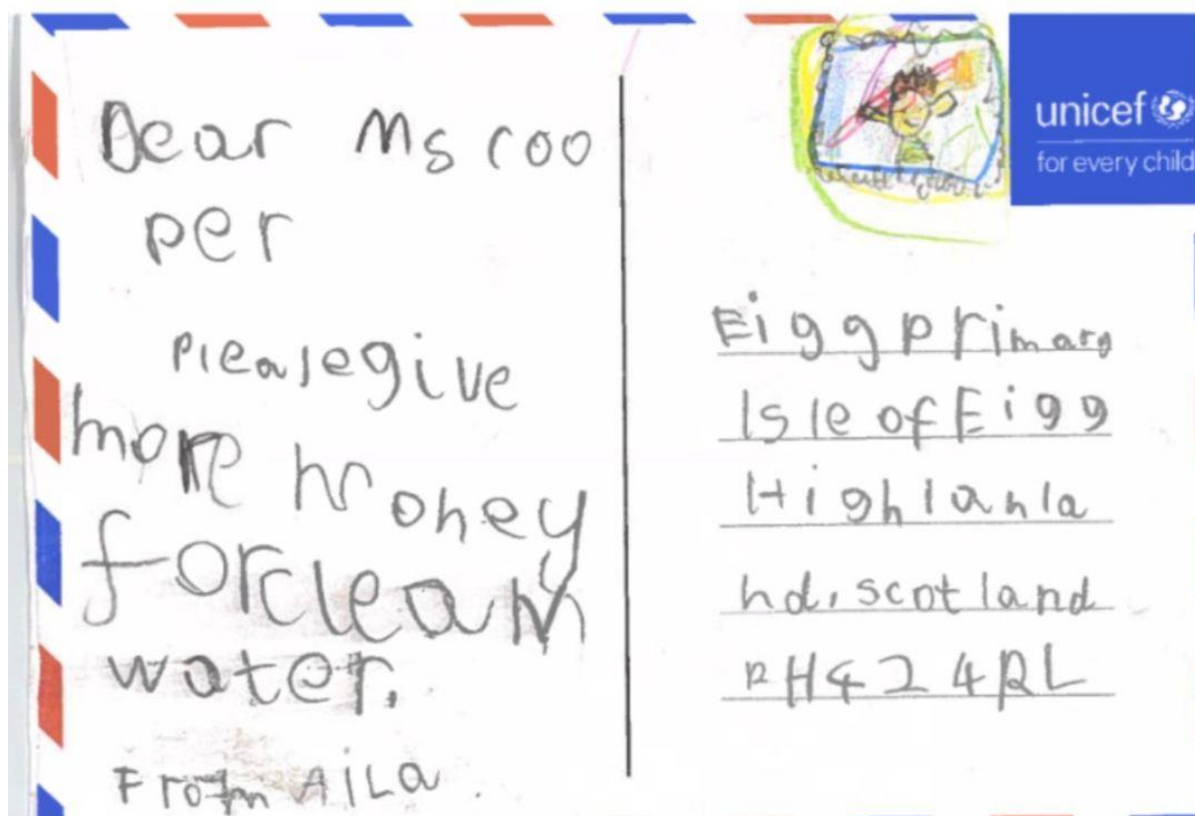 Dear Ms coo
per
Please give
more money
for clean
water.
From Aila.
unicef
for every child
Eigg primary
Isle of Eigg
Highlanla
nd, scotland
PH42 4RL